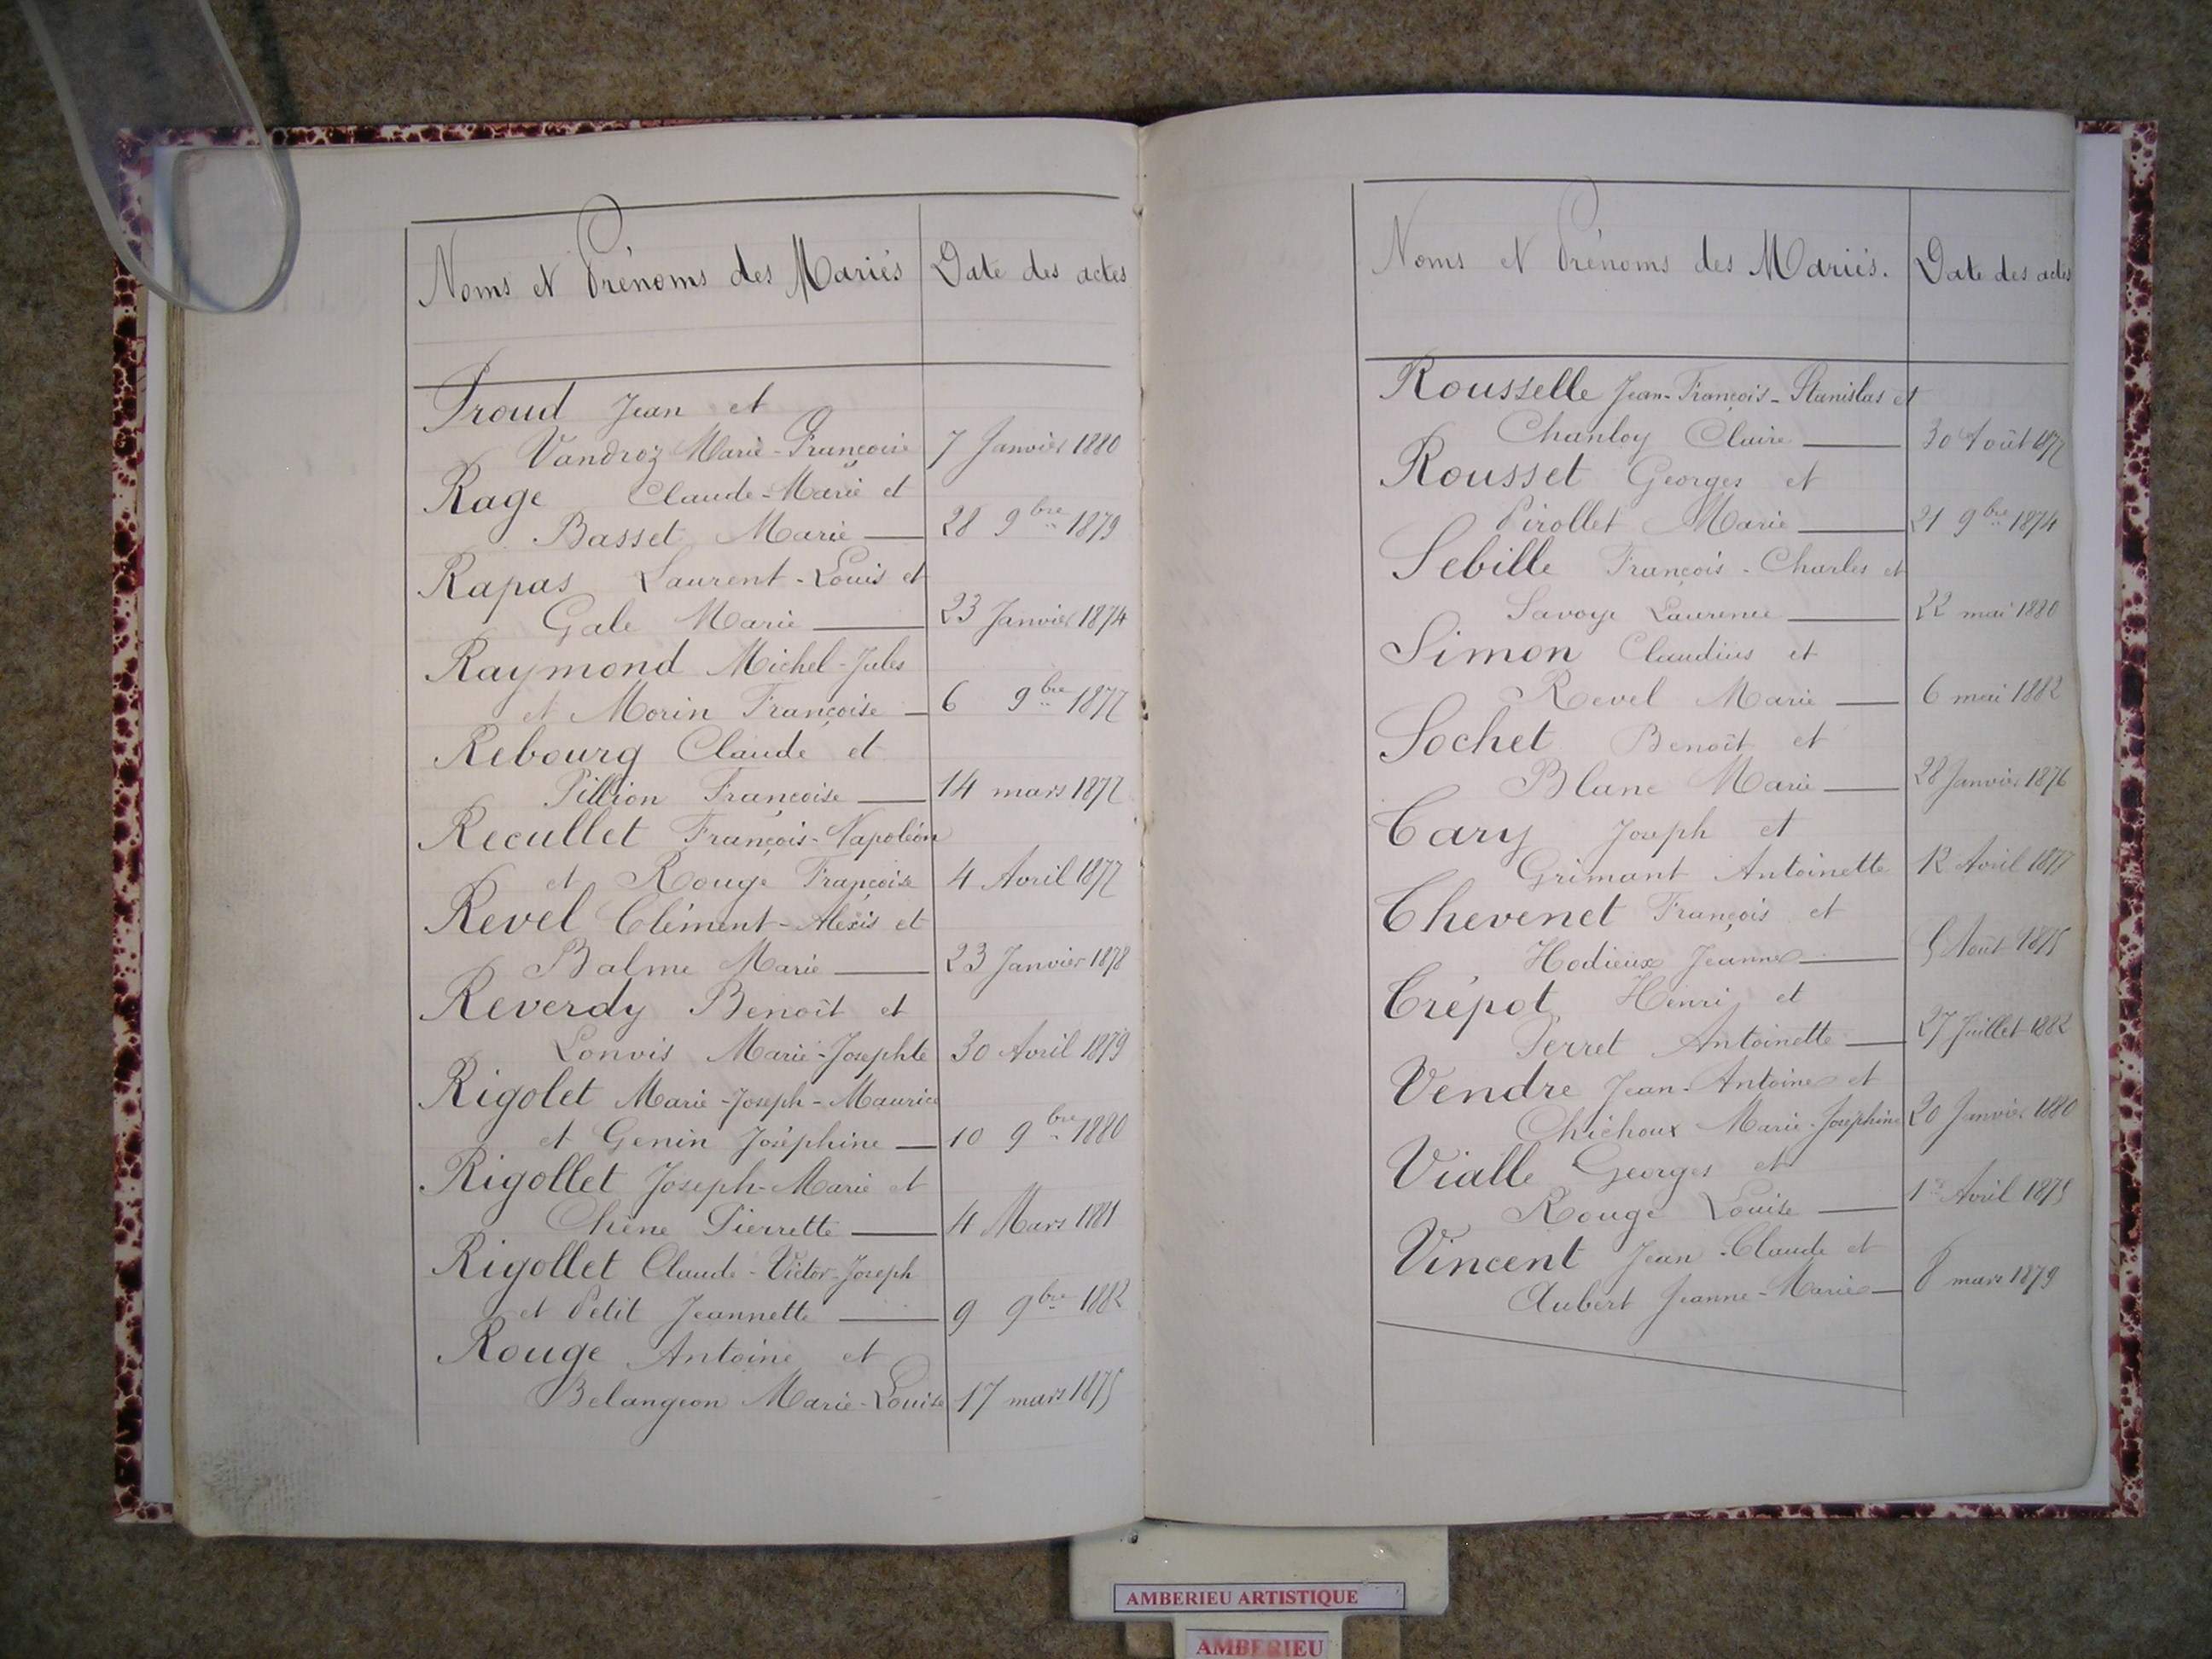 Noms et Prénoms des Mariés Date des actes
Proud Jean et
Vandroz Marie-Françoise 7 Janvier 1880
Rage Claude-Marie et
Basset Marie 28 9bre 1879
Rapas Laurent-Louis et
Gale Marie 23 Janvier 1874
Raymond Michel-Jules
et Morin Françoise 6 9bre 1877
Rebourg Claude et
Pillion Françoise 14 mars 1877
Recullet François-Napoléon
et Rouge Françoise 4 Avril 1877
Revel Clément-Alexis et
Balme Marie 23 Janvier 1878
Reverdy Benoît et
Lonvis Marie-Josephte 30 Avril 1879
Rigolet Marie-Joseph-Maurice
et Genin Joséphine 10 9bre 1880
Rigollet Joseph-Marie et
Chêne Pierrette 4 Mars 1881
Rigollet Claude-Victor-Joseph
et Petit Jeannette 9 9bre 1882
Rouge Antoine et
Belangeon Marie-Louise 17 mars 1875
Noms et Prénoms des Mariés. Date des actes
Rousselle Jean-François-Stanislas et
Chanloy Claire 30 Août 1877
Rousset Georges et
Pirollet Marie 21 9bre 1874
Sebille François-Charles et
Savoye Laurence 22 mai 1880
Simon Claudius et
Revel Marie 6 mai 1882
Sochet Benoît et
Blanc Marie 28 Janvier 1876
Tary Joseph et
Grimant Antoinette 12 Avril 1877
Thevenet François et
Hodieux Jeanne 5 Août 1875
Trépot Henri et
Perret Antoinette 27 Juillet 1882
Vendre Jean-Antoine et
Chichoux Marie-Joséphine 20 Janvier 1880
Vialle Georges et
Rouge Louise 1er Avril 1875
Vincent Jean-Claude et
Aubert Jeanne-Marie 8 mars 1879
AMBERIEU ARTISTIQUE
AMBERIEU